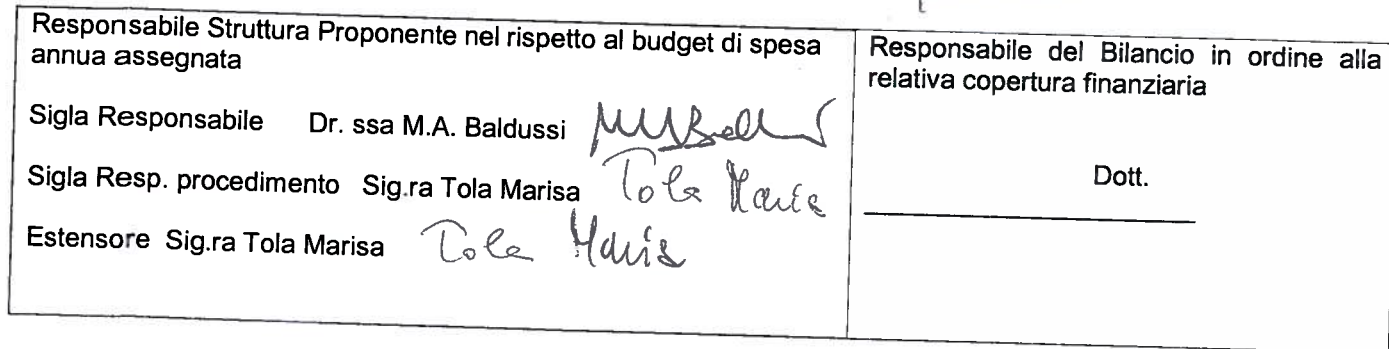 Responsabile Struttura Proponente nel rispetto al budget di spesa
annua assegnata
Sigla Responsabile Dr. ssa M.A. Baldussi
Sigla Resp. procedimento Sig.ra Tola Marisa Tola Maria
Estensore Sig.ra Tola Marisa Tola Maris
Responsabile del Bilancio in ordine alla
relativa copertura finanziaria
Dott.